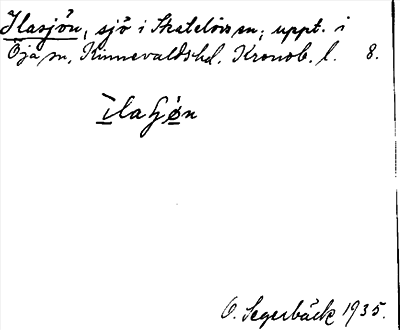 Ilasjön, sjö i Skatelövs sn, uppt. i
Öja sn, Kinnevalds hd. Kronob. l. 8.
Ilaʃøn
O. Segerbäck 1935.